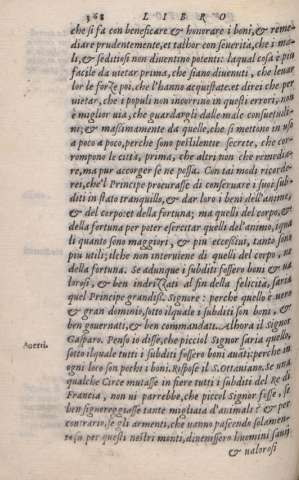 368 LIBRO
che si fa con beneficare & honorare i boni, & reme-
diare prudentemente, et talhor con seuerità, che i ma-
li, & seditiosi non diuentino potenti: laqual cosa è piu
facile da uietar prima, che siano diuenuti, che leuar
lor le forze poi, che l'hanno acquistate. et direi che per
uietar, che i populi non incorrino in questi errori, non
è miglior uia, che guardargli dalle male consuetudi-
ni; & massimamente da quelle, che si mettono in uso
a poco a poco, perche sono pestilentie secrete, che cor-
rompono le città, prima, che altri non che remedia-
re, ma pur accorger se ne possa. Con tai modi ricorde-
rei, che'l Principe procurasse di conseruare i suoi sub-
diti in stato tranquillo, & dar loro i beni dell'animo,
& del corpo et della fortuna; ma quelli del corpo, &
della fortuna per poter esercitar quelli del'animo, iqua
li quanto sono maggiori, & piu eccessiui, tanto sono
piu utili; ilche non interuiene di quelli del corpo, ne
della fortuna. Se adunque i subditi fossero boni & ua
lorosi, & ben indrizzati al fin della felicità, saria
quel Principe grandiss. Signore: perche quello è uero
& gran dominio, sotto ilquale i subditi son boni, &
ben gouernati, & ben commandati. Alhora il Signor
Auerti. Gasparo. Penso io disse, che picciol Signor saria quello,
sotto ilquale tutti i subditi fossero boni auati; perche in
ogni loco son pochi i boni. Rispose il S. Ottauiano. Se una
qualche Circe mutasse in fiere tutti i subditi del Re di
Francia, non ui parrebbe, che piccol Signor fosse, se
ben signoreggiasse tante migliara d'animali? & per
contrario, se gli armenti, che uanno pascendo solamen-
te su per questi nostri monti, diuenissero huomini sauij
& ualorosi